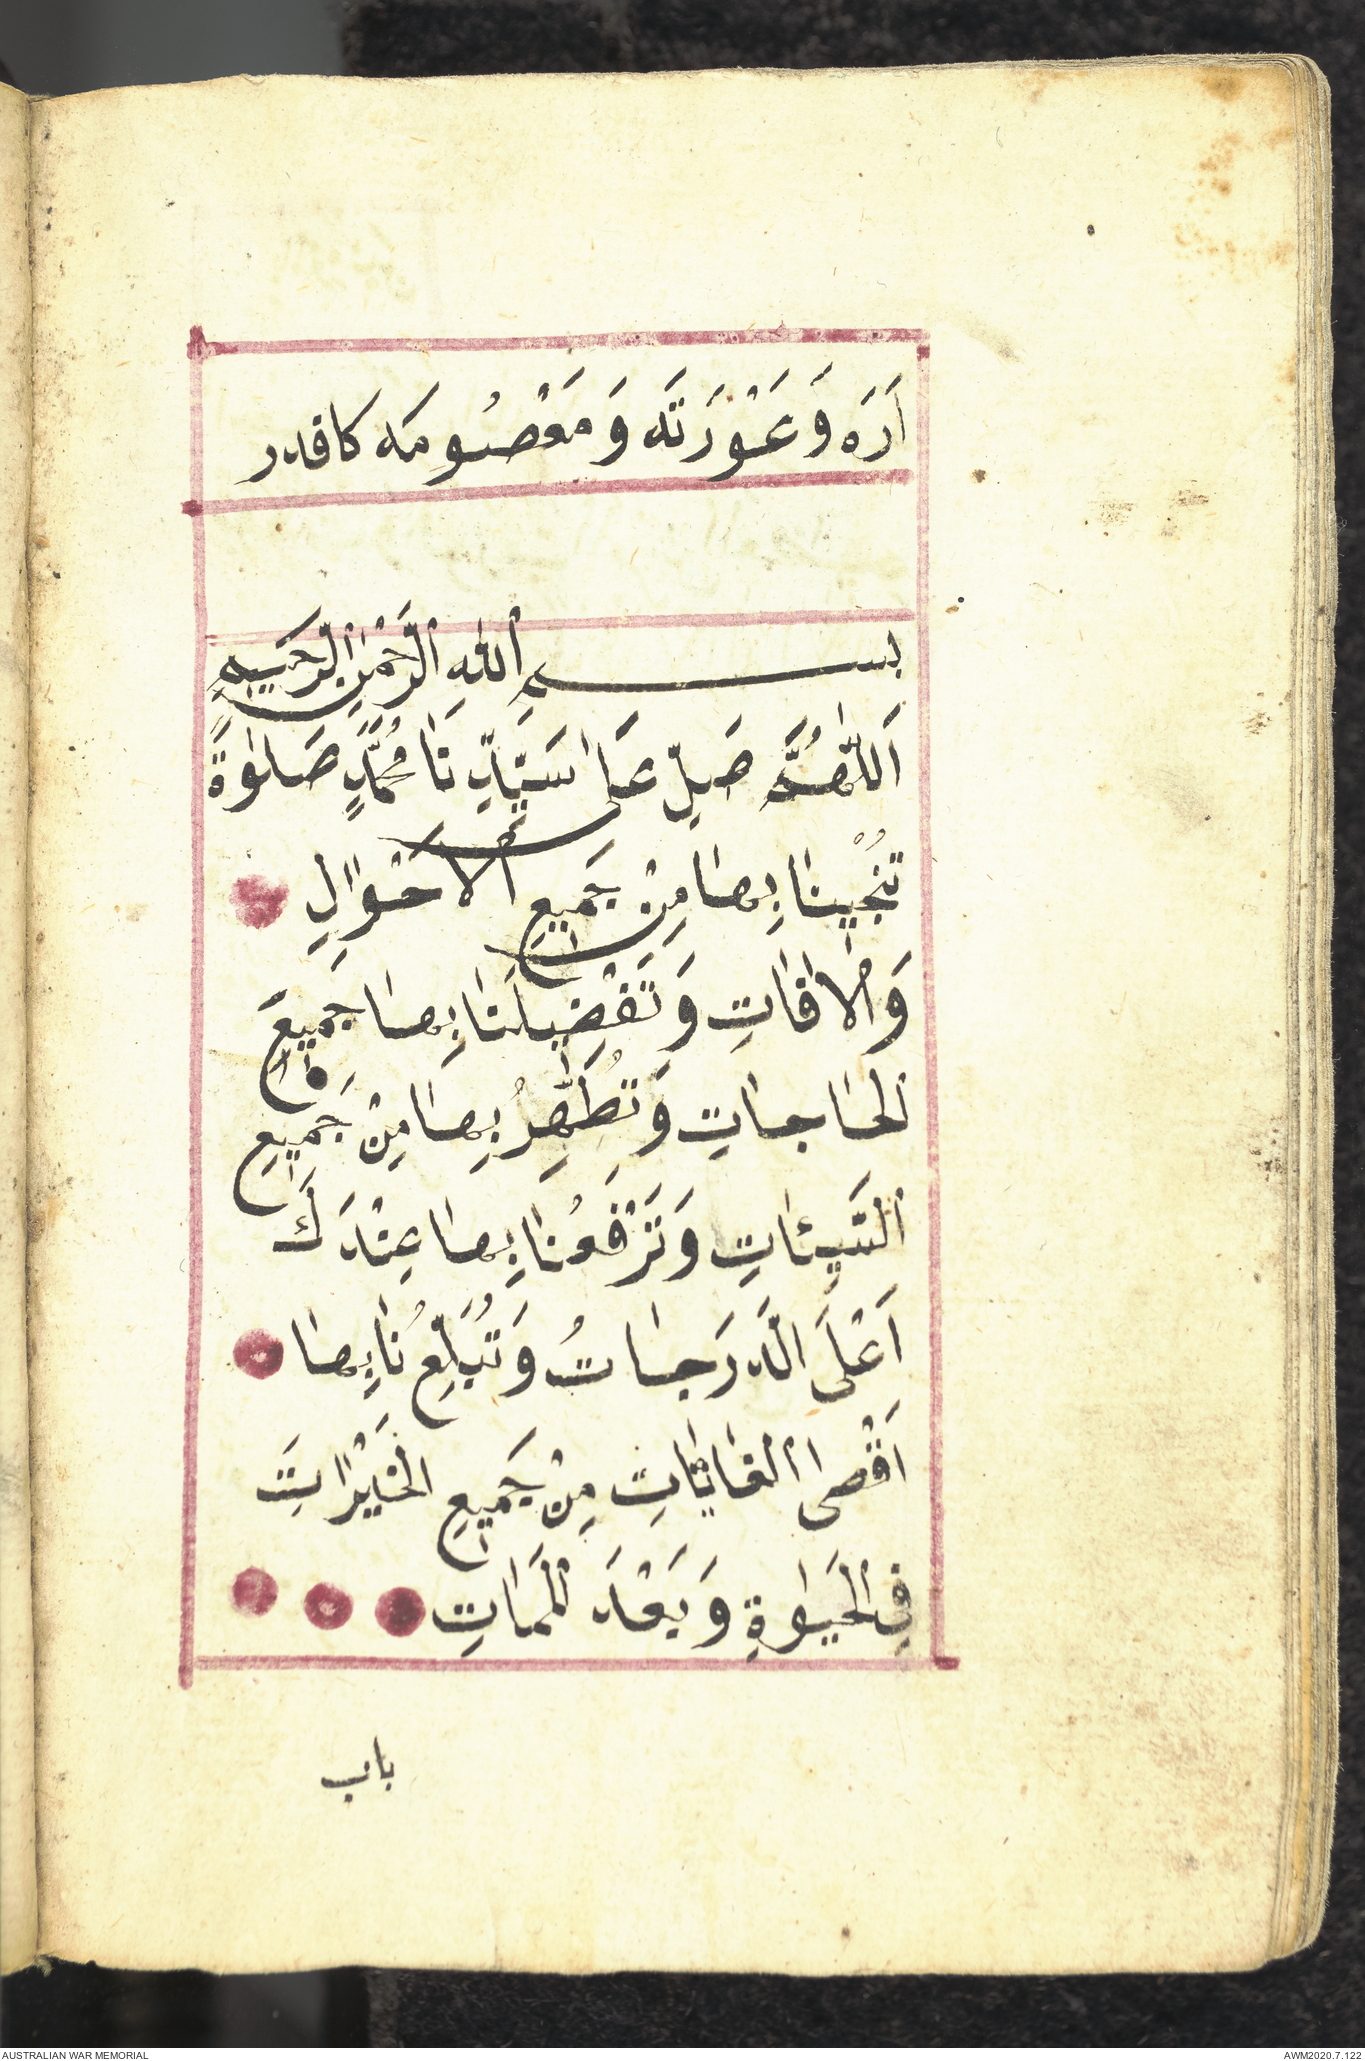 اَرَه وَ عَوْرَتَه وَ مَعْصُومَه كافدر
بسم اللهِ الرَّحْمٰنِ الرَّحيمِ
اَللّٰهُمَّ صَلِّ عَلٰى سَيِّدِنَا مُحَمَّدٍ صَلٰوةً
تُنْجِينَا بِهَا مِنْ جَمِيعِ الْاَحْوَالِ
وَالْاٰفَاتِ وَتَقْضِيلَنَا بِهَا جَمِيعَ
الحَاجَاتِ وَتُطَهِّرُ بِهَا مِنْ جَمِيعِ
السَّيِئَاتِ وَتَرْفَعُنَا بِهَا عِنْدَكَ
اَعْلَى الدَّرَجَاتُ وَتُبَلِّغُنَا بِهَا
اَقْصَى الغَايَاتِ مِنْ جَمِيعِ الْخَيْرَاتِ
فِى الْحَيٰوةِ وَبَعْدَ الْمَمَاتِ
باب
AUSTRALIAN WAR MEMORIAL
AWM2020.7.122